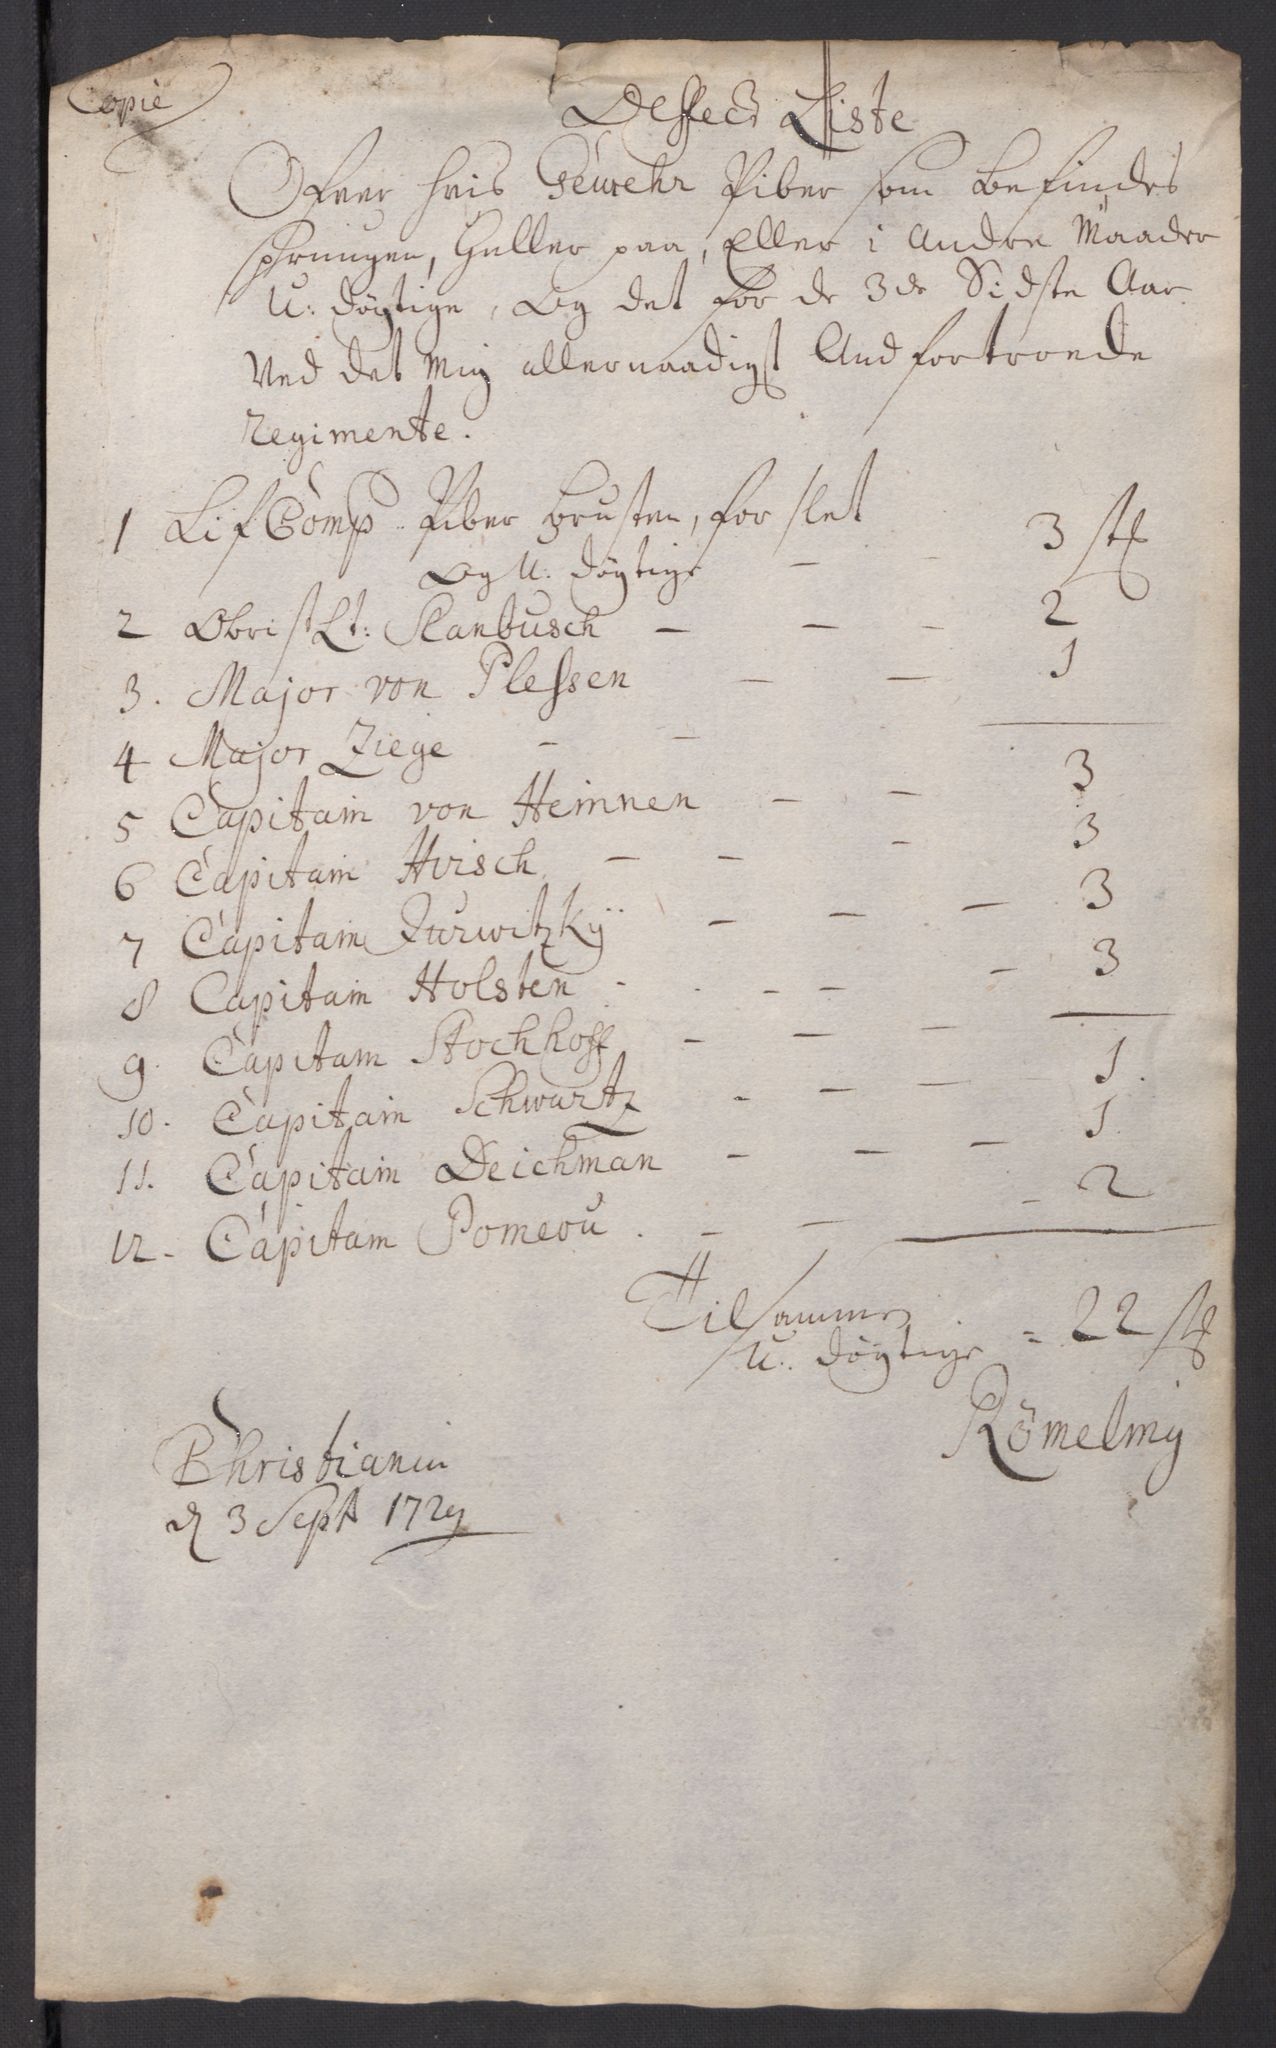 Copie
Defect Liste
Ofver hvis Gewehr Piber som befindes
sprungen, Huller paa, Eller i Andre Maader
U: døgtige, Og det for de 3de Sidste Aar
Ved det Mig allernaadigst Andfortroede
Regimente.
1 Lif Comp. Piber brusten, for slet
Og U: døgtige — — 3 st
2 Obrist Lt: Slanbusch — — — 2
3. Major von Plessen — — 1
4 Major Ziege — — —
5 Capitain von Heinnen — — 3
6 Capitain Hvisch — — — 3
7 Capitain Zurwitzkÿ — — — 3
8 Capitain Holsten - - — — 3
9. Capitain Stochhoff — — — —
10. Capitain Schwartz - — — 1.
11. Capitain Deichman — — — 1
12 - Capitain Pomeou . — — - 2
Tilsammen
U: døgtige = 22 st
Römeling
Christiania
d 3 Sept 1729